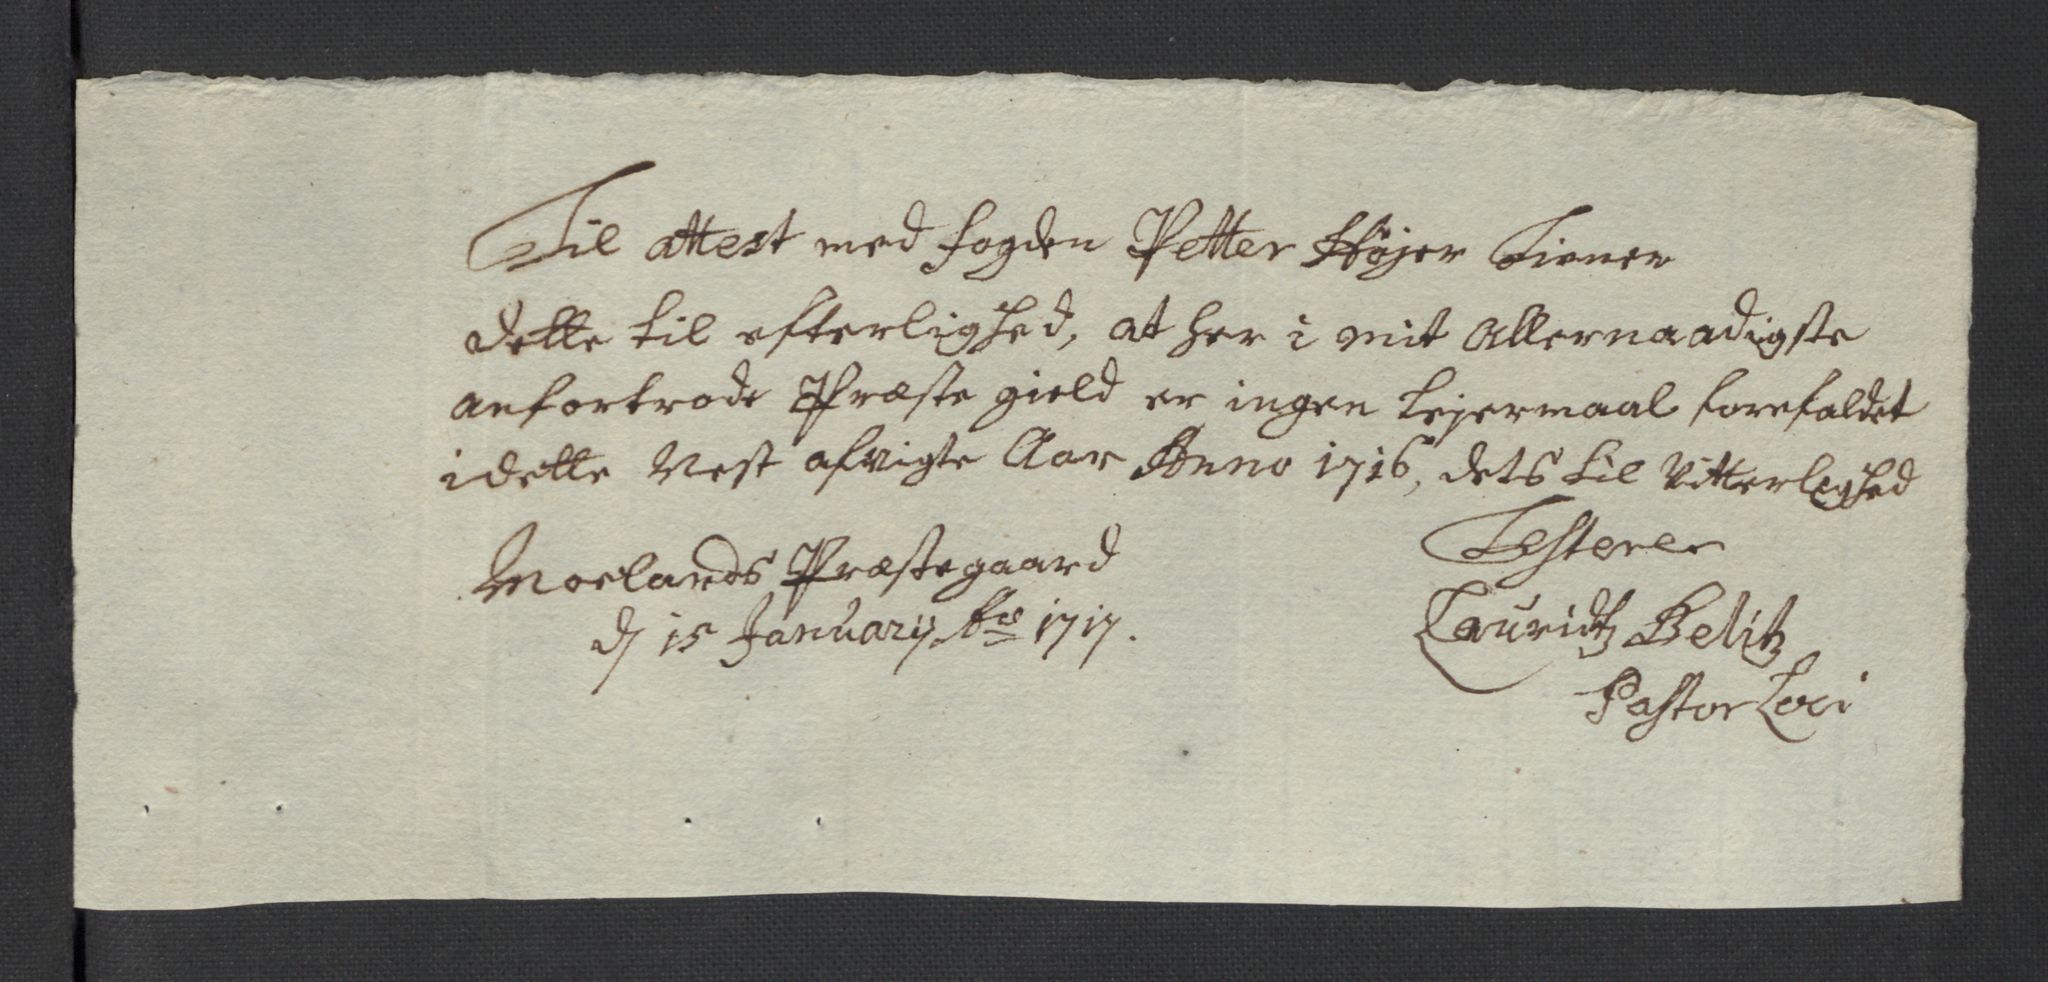 Til attest med fogden Petter Højer Tiener
dette til efterlighed, at her i mit Allernaadigste
anfortrode Præste gield er ingen Lejermaal forefaldet
i dette Nest afvigte Aar Anno 1716, dets til Vitterlighed
Testerer
Moelands Præstegaard
d 15 Januarij Ao 1717.
Lauridtz Belitz
Pastor Loci